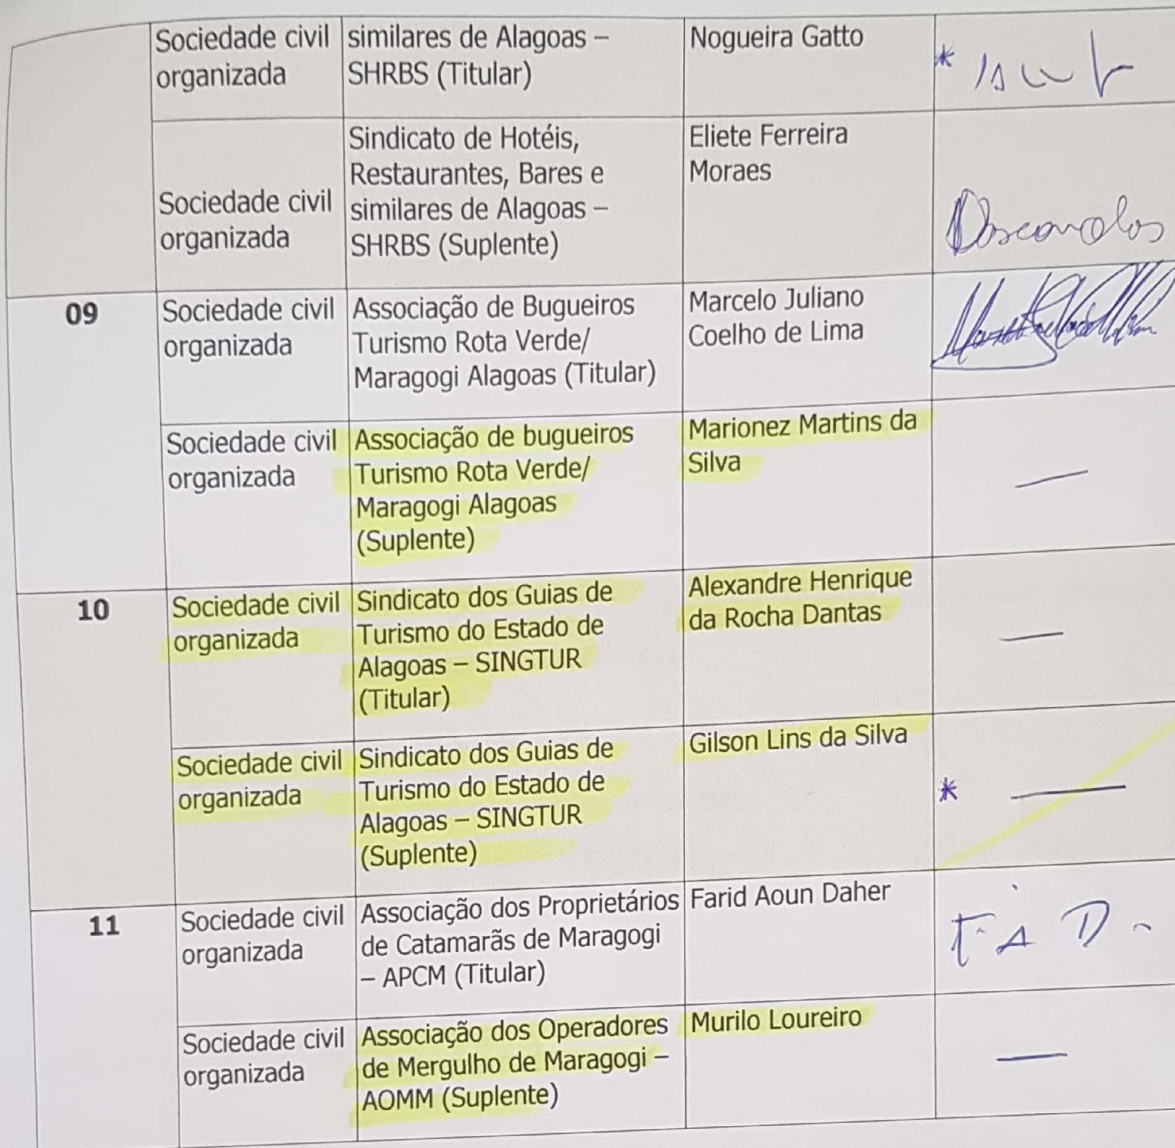 Sociedade civil
organizada
similares de Alagoas –
SHRBS (Titular)
Nogueira Gatto
*
Sociedade civil
organizada
Sindicato de Hotéis,
Restaurantes, Bares e
similares de Alagoas –
SHRBS (Suplente)
Eliete Ferreira
Moraes
09
Sociedade civil
organizada
Associação de Bugueiros
Turismo Rota Verde/
Maragogi Alagoas (Titular)
Marcelo Juliano
Coelho de Lima
Sociedade civil
organizada
Associação de bugueiros
Turismo Rota Verde/
Maragogi Alagoas
(Suplente)
Marionez Martins da
Silva
—
10
Sociedade civil
organizada
Sindicato dos Guias de
Turismo do Estado de
Alagoas – SINGTUR
(Titular)
Alexandre Henrique
da Rocha Dantas
—
Sociedade civil
organizada
Sindicato dos Guias de
Turismo do Estado de
Alagoas – SINGTUR
(Suplente)
Gilson Lins da Silva
* —
11
Sociedade civil
organizada
Associação dos Proprietários
de Catamarãs de Maragogi
– APCM (Titular)
Farid Aoun Daher
F. A D.
Sociedade civil
organizada
Associação dos Operadores
de Mergulho de Maragogi –
AOMM (Suplente)
Murilo Loureiro
—